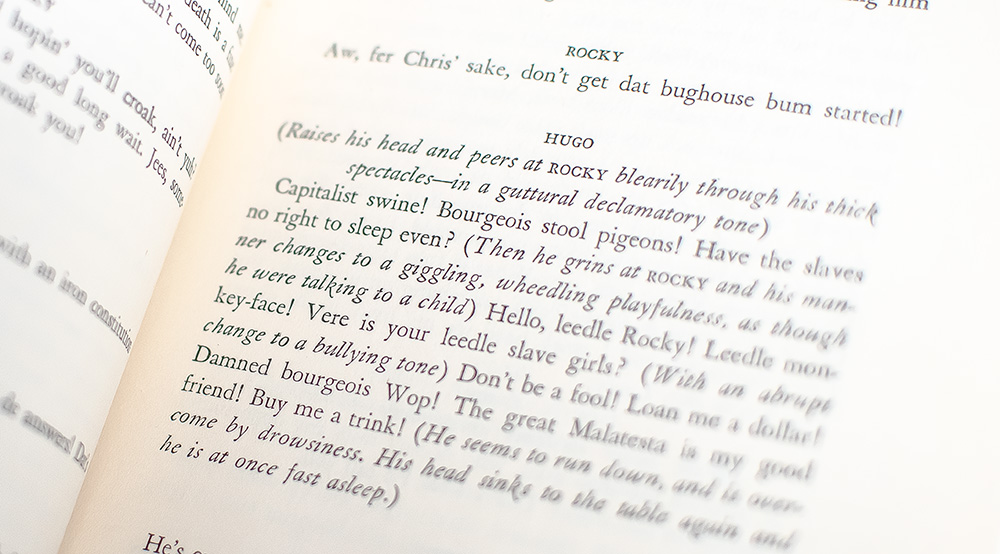 hind me
death is a fine
can't come too soon
hopin' you'll croak, ain't yuh
a good long wait. Jees, some
croak you!
with an iron constitution
de answer! Dat
him
ROCKY
Aw, fer Chris' sake, don't get dat bughouse bum started!
HUGO
(Raises his head and peers at ROCKY blearily through his thick
spectacles—in a guttural declamatory tone)
Capitalist swine! Bourgeois stool pigeons! Have the slaves
no right to sleep even? (Then he grins at ROCKY and his man-
ner changes to a giggling, wheedling playfulness, as though
he were talking to a child) Hello, leedle Rocky! Leedle mon-
key-face! Vere is your leedle slave girls? (With an abrupt
change to a bullying tone) Don't be a fool! Loan me a dollar!
Damned bourgeois Wop! The great Malatesta is my good
friend! Buy me a trink! (He seems to run down, and is over-
come by drowsiness. His head sinks to the table again and
he is at once fast asleep.)
He's